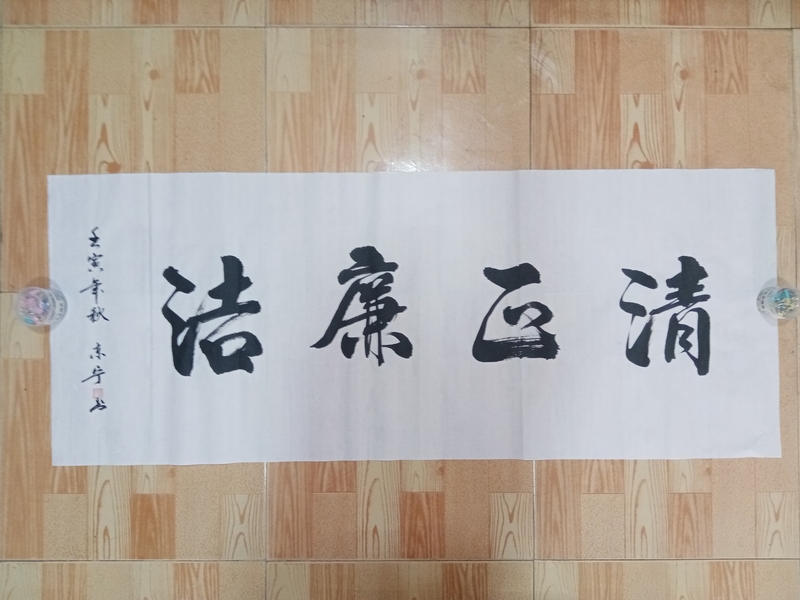 清正廉洁
壬寅年秋 京宁书